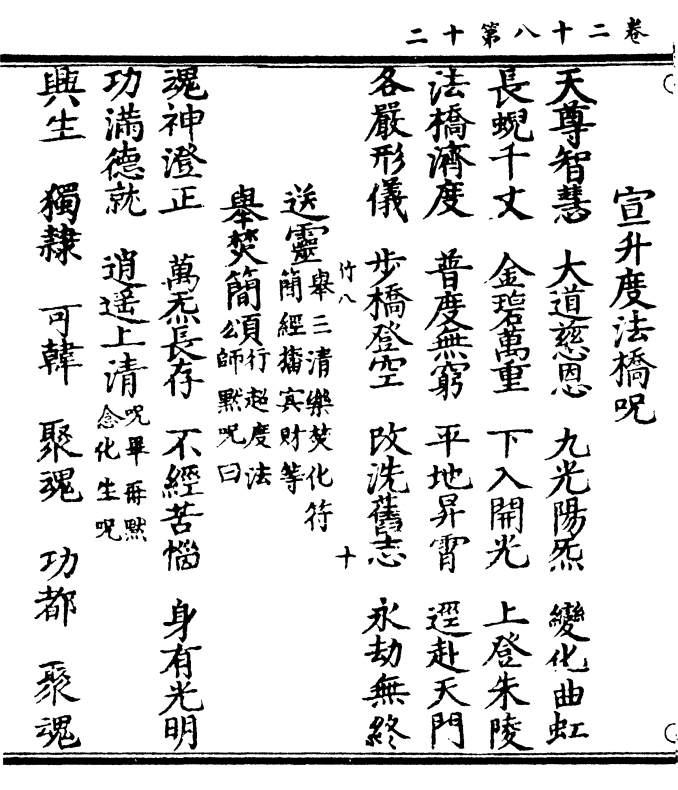 卷二十八第十二
宣升度法橋呪
天尊智慧　大道慈恩　九光陽炁　變化曲虹
長蜺千丈　金碧萬重　下入開光　上登朱陵
法橋濟度　普度無窮　平地昇霄　逕赴天門
各嚴形儀　步橋登空　改洗舊志　永劫無終
竹八　十
送靈舉三清樂焚化符簡經旛賓財等
舉焚簡頌行超度法師默呪曰
魂神澄正　萬炁長存　不經苦惱　身有光明
功滿德就　逍遥上清呪畢再默念化生呪
興生　獨隸　可韓　聚魂　功都　聚魂